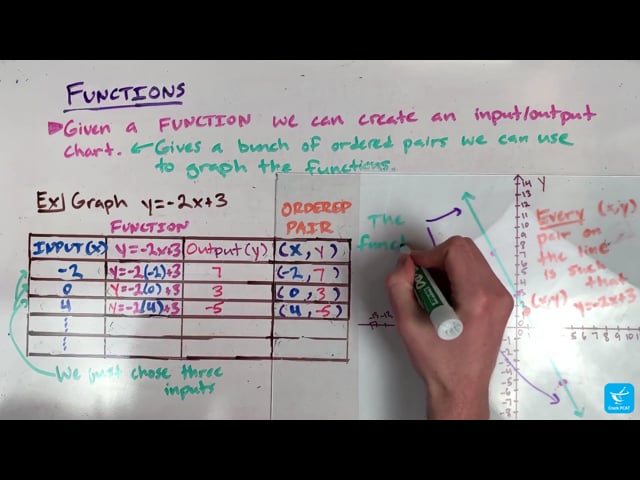 FUNCTIONS
Given a FUNCTION we can create an input/output
chart. ← Gives a bunch of ordered pairs we can use
to graph the functions.
Ex) Graph y=-2x+3
FUNCTION
ORDERED
PAIR
INPUT(x) y=-2x+3 Output(y) (x, y)
-2 y=-2(-2)+3 7 (-2, 7)
0 y=-2(0)+3 3 (0, 3)
4 y=-2(4)+3 -5 (4, -5)
We just chose three
inputs
The
funct
y
14
13
12
11
10
9
8
7
6
5
Every (x,y)
pair on
the line
is such
that
(x,y) y=-2x+3
5 6 7 8 9 10 11
-1
-2
-3
-4
-5
-6
-7
-8
Crash PCAT